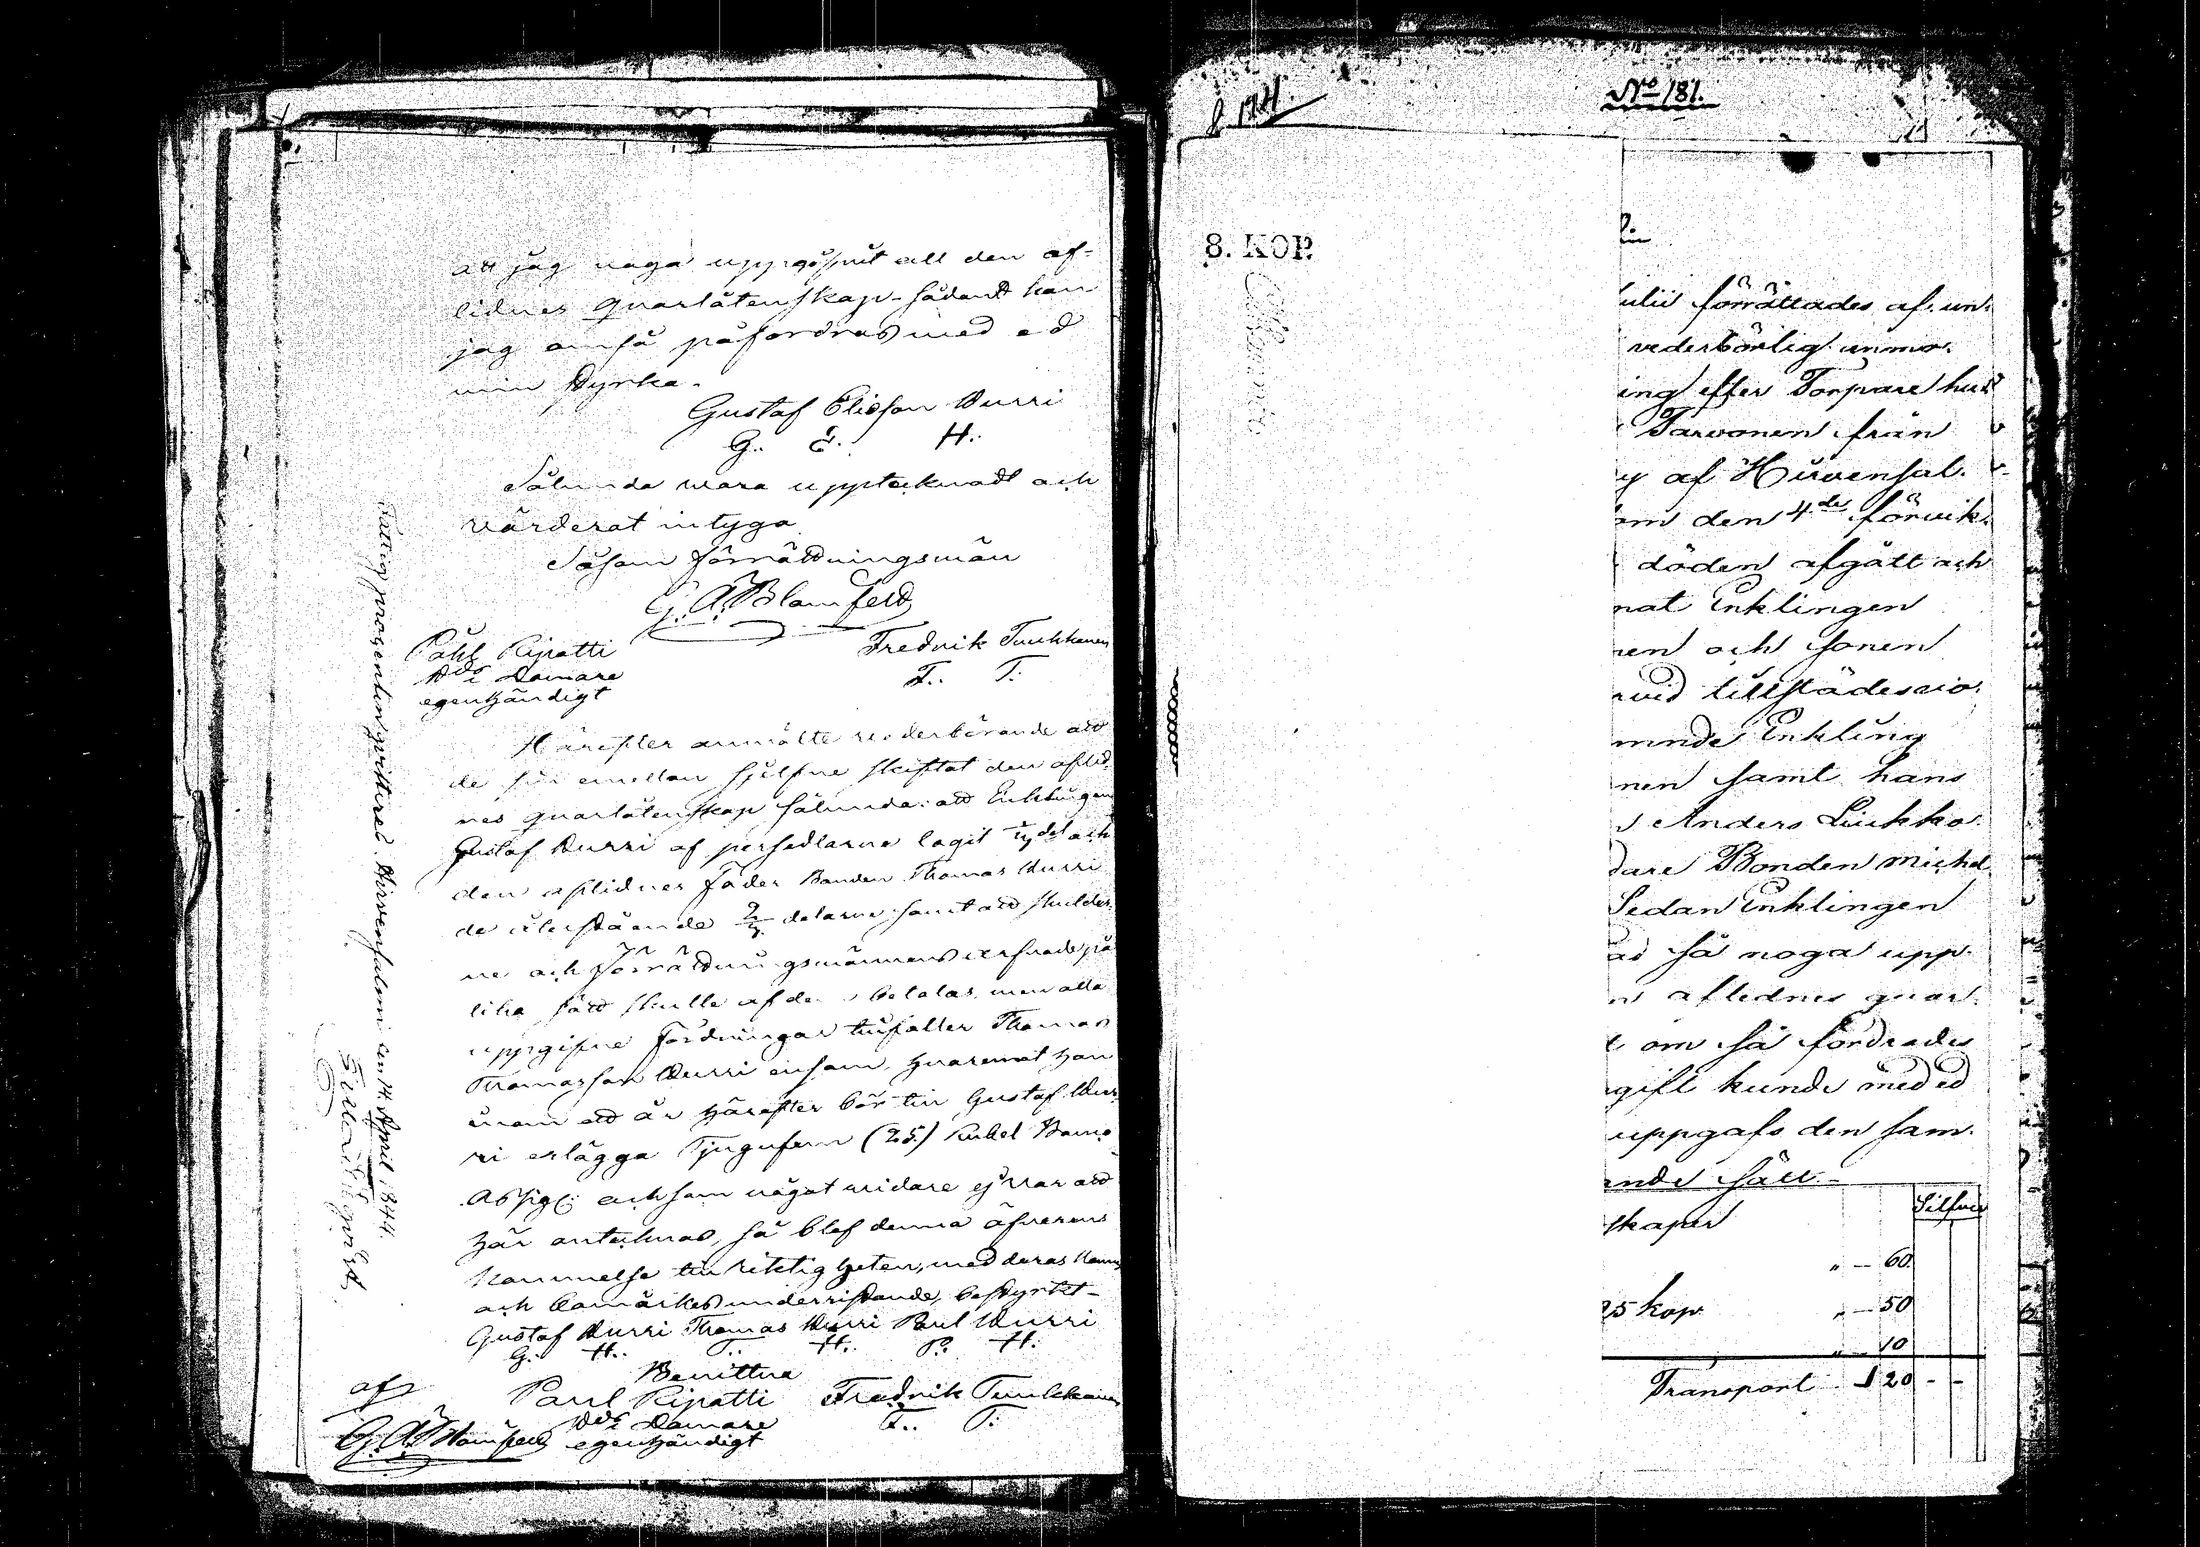 att jag noga uppgifvit all den af-
lidnes quarlåtenskap sådant kan
jag om så påfordras med ed
min styrka.
Gustaf Eliasson Hurri
G. E. H.
Sålunda vara upptecknadt och
värderat intyga
Såsom förrättningsmän
G. A. Blomfeld
Påhl Ripatti
egenhändigt
Fredrik Tuukkanen
F. T.
Härefter anmälte vederbörande att
de sin emellan sjelfve skiftat den aflid-
nes quarlåtenskap sålunda: att Enklingen
Gustaf Hurri af persedlarne tagit del och
den aflidnes Fader Bonden Thomas Hurri
de återstående delarne samt att skulder-
ne och Förrättningsmännens arfvode på
lika sätt skulle af dem betalas, men alla
uppgifne Fordringar tillfaller Thomas
Thomasson Hurri ensam, hvaremot han
inom ett år härefter bör till Gustaf Hur-
ri erlägga Tjugufem (25) Rubel Banco
Assign: och som något vidare ej var att
här antecknas, så blef denna öfverens
kommelse till riktigheten, med deras Namn
och bomärkes underristande, bestyrkt
Gustaf Hurri Thomas Hurri Paul Hurri
G. H. T. H. P. H.
Bevittna
Paul Ripatti Fredrik Tuukkanen
egenhändigt
F. T.
af
G. A. Blomfeld
Fattig procenten qvitteras. Hirvensalmi den 14 April 1844.
No 181.
8. KOP.
ulii förrättades af un-
vederbörlig anmo-
ing efter Torpare hust
Tarvonen från
y af Hirvensal-
om den 4de förvik-
döden afgått och
nat Enklingen
nen och sonen
rvid tillstädesva-
mnde Enkling
nen samt hans
Anders Liukko-
dare Bonden Michel
Sedan Enklingen
as så noga upp-
aflednes quar-
t om så fordrades
gift kunde med ed
uppgafs den sam-
ande sätt.
Silfver
skaper
" — 60.
25 kop. " — 50
" — 10
Transport 1 20 - -